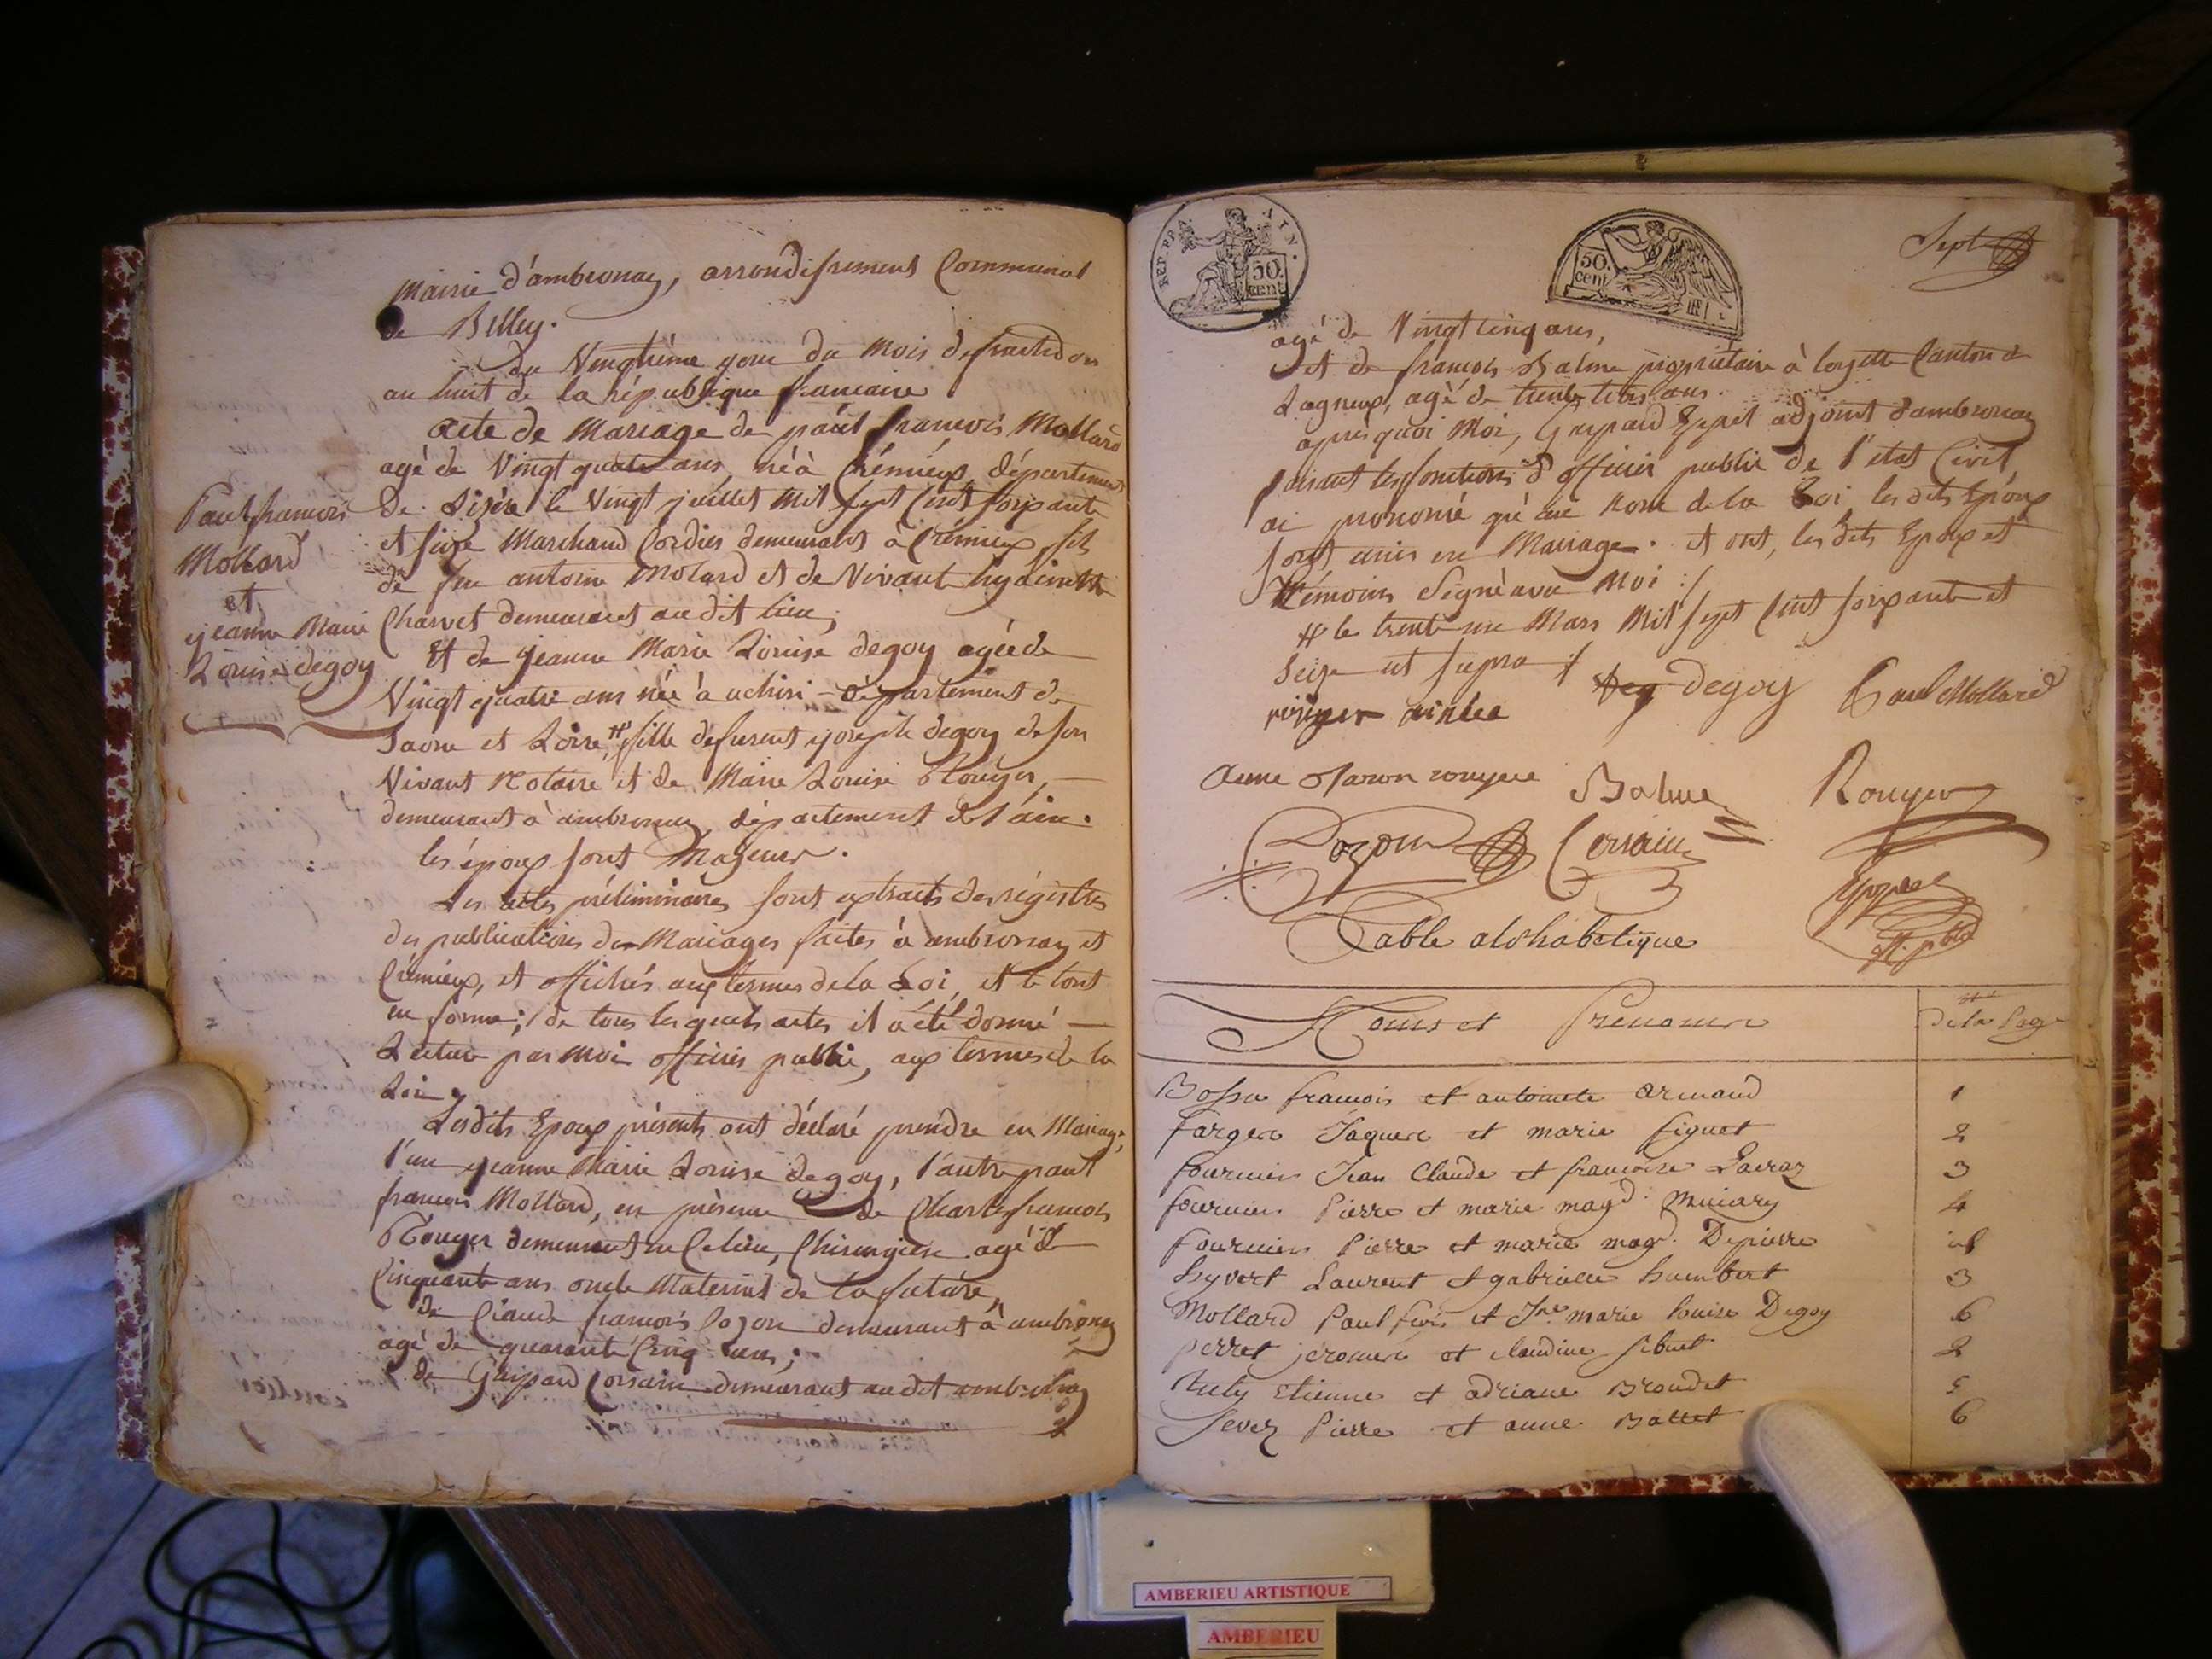 Mairie d'ambronay, arrondissement Communal
de Belley.
du Vingtième jour du mois de fructidor
an huit de la république francaise
acte de Mariage de paul francois Mollard
agé de Vingt quatre ans, né à Crémieux département
de Lisère le Vingt juillet mil sept Cent soixante
et seize Marchand Cordier demeurant à Crémieux, fils
de feu antoine Molard et de Vivant hyacinthe
Charvet demeurant au dit lieu,
Et de jeanne Marie Louise degoy agée de
Vingt quatre ans née à uchisi - département de
Saone et Loire, # fille de furent joseph degoy de son
Vivant Notaire, et de Marie Louise Rouyer,
demeurant à ambronay département de l'ain.
les époux sont Majeurs.
Les actes préliminaires sont extraits des régistres
des publications des Mariages faites à ambronay et
Crémieux, et affichés aux termes de la Loi, et le tout
en forme; de tous les quels actes il a été donné
Lecture par Moi officier public, aux termes de la
Loi.
Les dits Epoux présents ont déclaré prendre en Mariage,
l'un jeanne Marie Louise degoy, l'autre paul
francois Mollard, en présence de Charles francois
Rouyer demeurant en Ce lieu, Chirurgien agé de
Cinquante ans oncle Maternel de la future,
de Claude francois Cozon demeurant à ambronay
agé de quarante Cinq ans;
de Gaspard Corsain demeurant au dit ambronay
Paul francois
Mollard
et
jeanne Marie
Louise degoy
REP. FRA.
AIN.
50.
cent
50.
cent
Sept
agé de Vingt cinq ans,
et de francois Balme propriétaire à loyette Canton de
Lagneux, agé de trente trois ans.
après quoi Moi, Gaspard Eyprel adjoint d'ambronay
faisant les fonctions d'officier public de l'etat Civil,
ai prononcé qu'au nom de la Loi les dits Epoux
sont unis en Mariage. et ont, les dits Epoux et
témoins Signé avec Moi :/
# le trente un Mars Mil sept Cent soixante et
Seize ut supra :/
degoy
Paul Mollard
rouyer ainée
anne rouyere
Balme
Rouyer
Cozon
Corsain
Table alphabetique
Noms et Prenoms
de la Page
Bossu francois et antoinete armand 1
farges Jaques et marie figuet 2
fournier Jean Claude et francoise Lacraz 3
fournier Pierre et marie magd. 4
fournier Pierre et marie magd. Depierre id
hyvert Laurent et gabrielle humbert 3
Mollard Paul fois et Jne. marie louise Degoy 6
perret jerome et claudine sibuet 2
Etienne et adriane Broudet 5
Sevez Pierre et anne Battet 6
AMBERIEU ARTISTIQUE
AMBERIEU